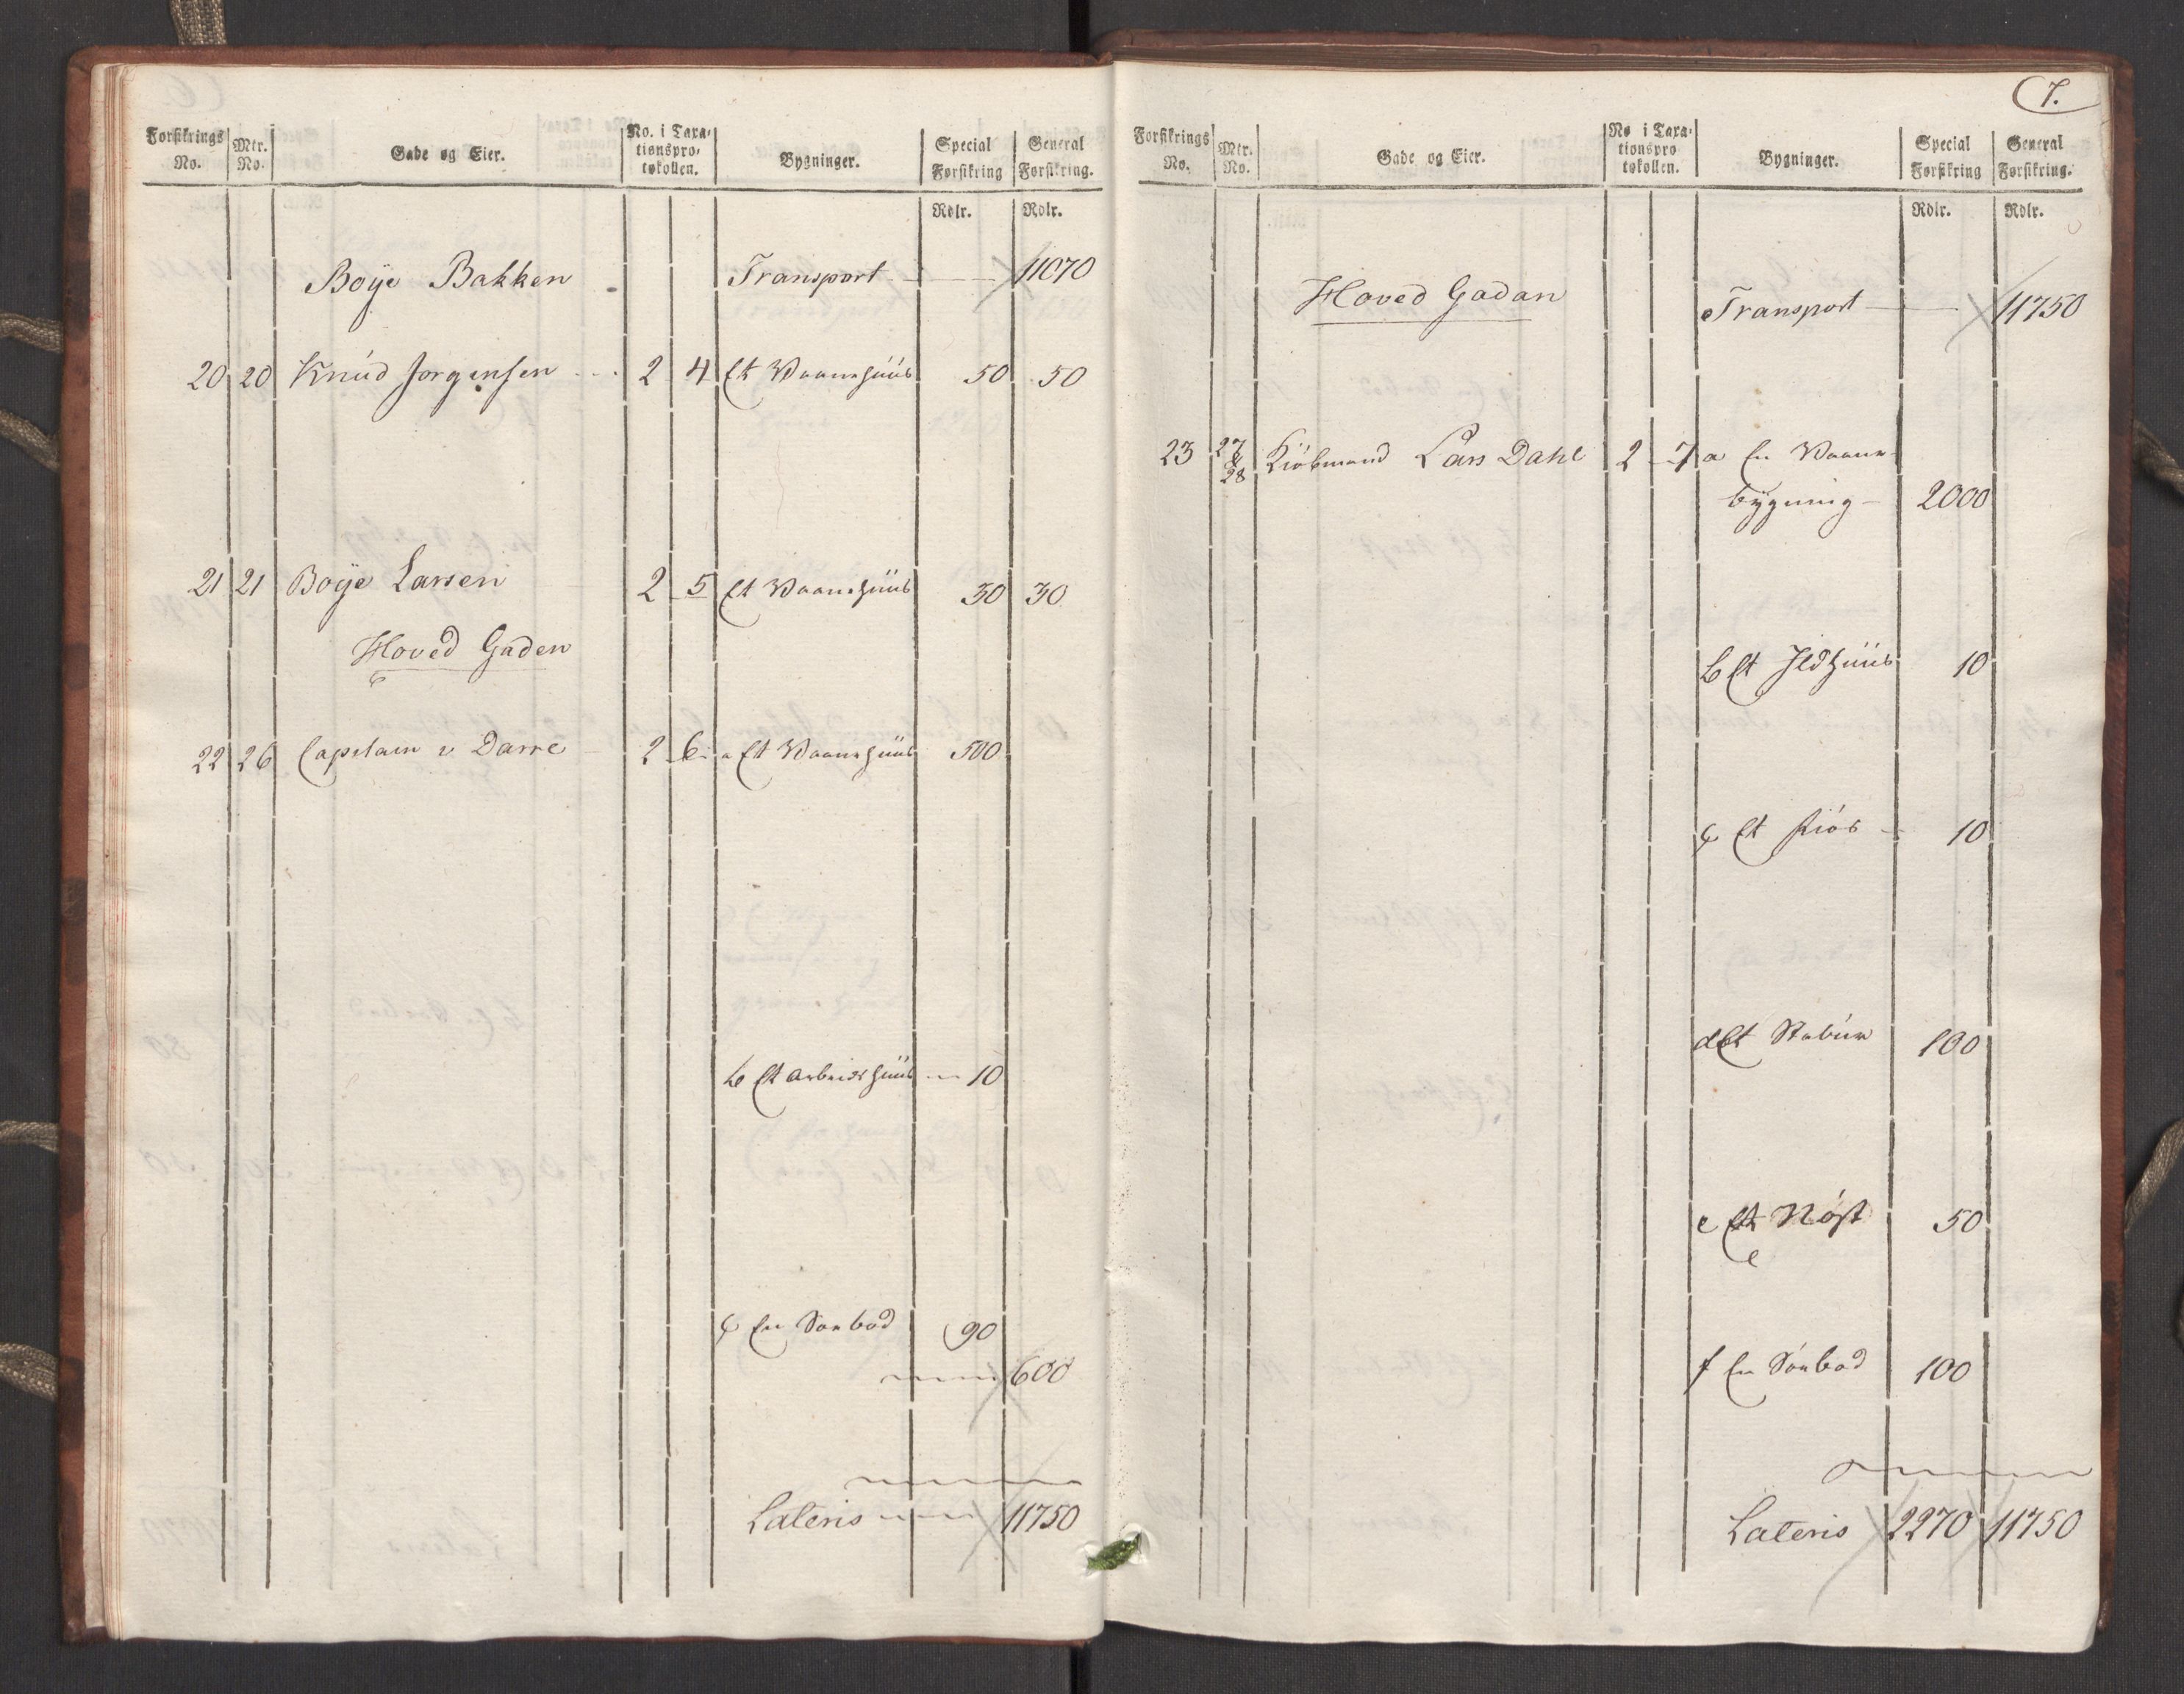 Forsikrings No. | Mtr. No. | Gade og Eier. | No. i Taxationsprotokollen. | Bygninger. | Special Forsikring | General Forsikring.
Rdlr. | Rdlr.
Boÿe Bakken | Transport | 11070
20 | 20 | Knúd Jørgensen | 2 | 4 | Et Vaanehúús | 50 | 50
21 | 21 | Boÿe Larsen | 2 | 5 | Et Vaanehúús | 30 | 30
Hoved Gaden
22 | 26 | Capitain v Darre | 2 | 6 | a Et Vaanehúús | 500
b Et Arbeidshúús | 10
c En Søebod | 90
600
Lateris | 11750
7.
Forsikrings No. | Mtr. No. | Gade og Eier. | No i Taxationsprotokollen. | Bygninger. | Special Forsikring | General Forsikring.
Rdlr. | Rdlr.
Hoved Gaden | Transport | 11750
23 | 27 & 28 | Kiöbmand Lars Dahl | 2 | 7 | a En Vaane-
bÿgning | 2000
b Et Ildhúús | 10
c Et Fiös | 10
d Et Stabúr | 100
e Et Nöst | 50
f En Söebod | 100
Lateris | 2270 | 11750